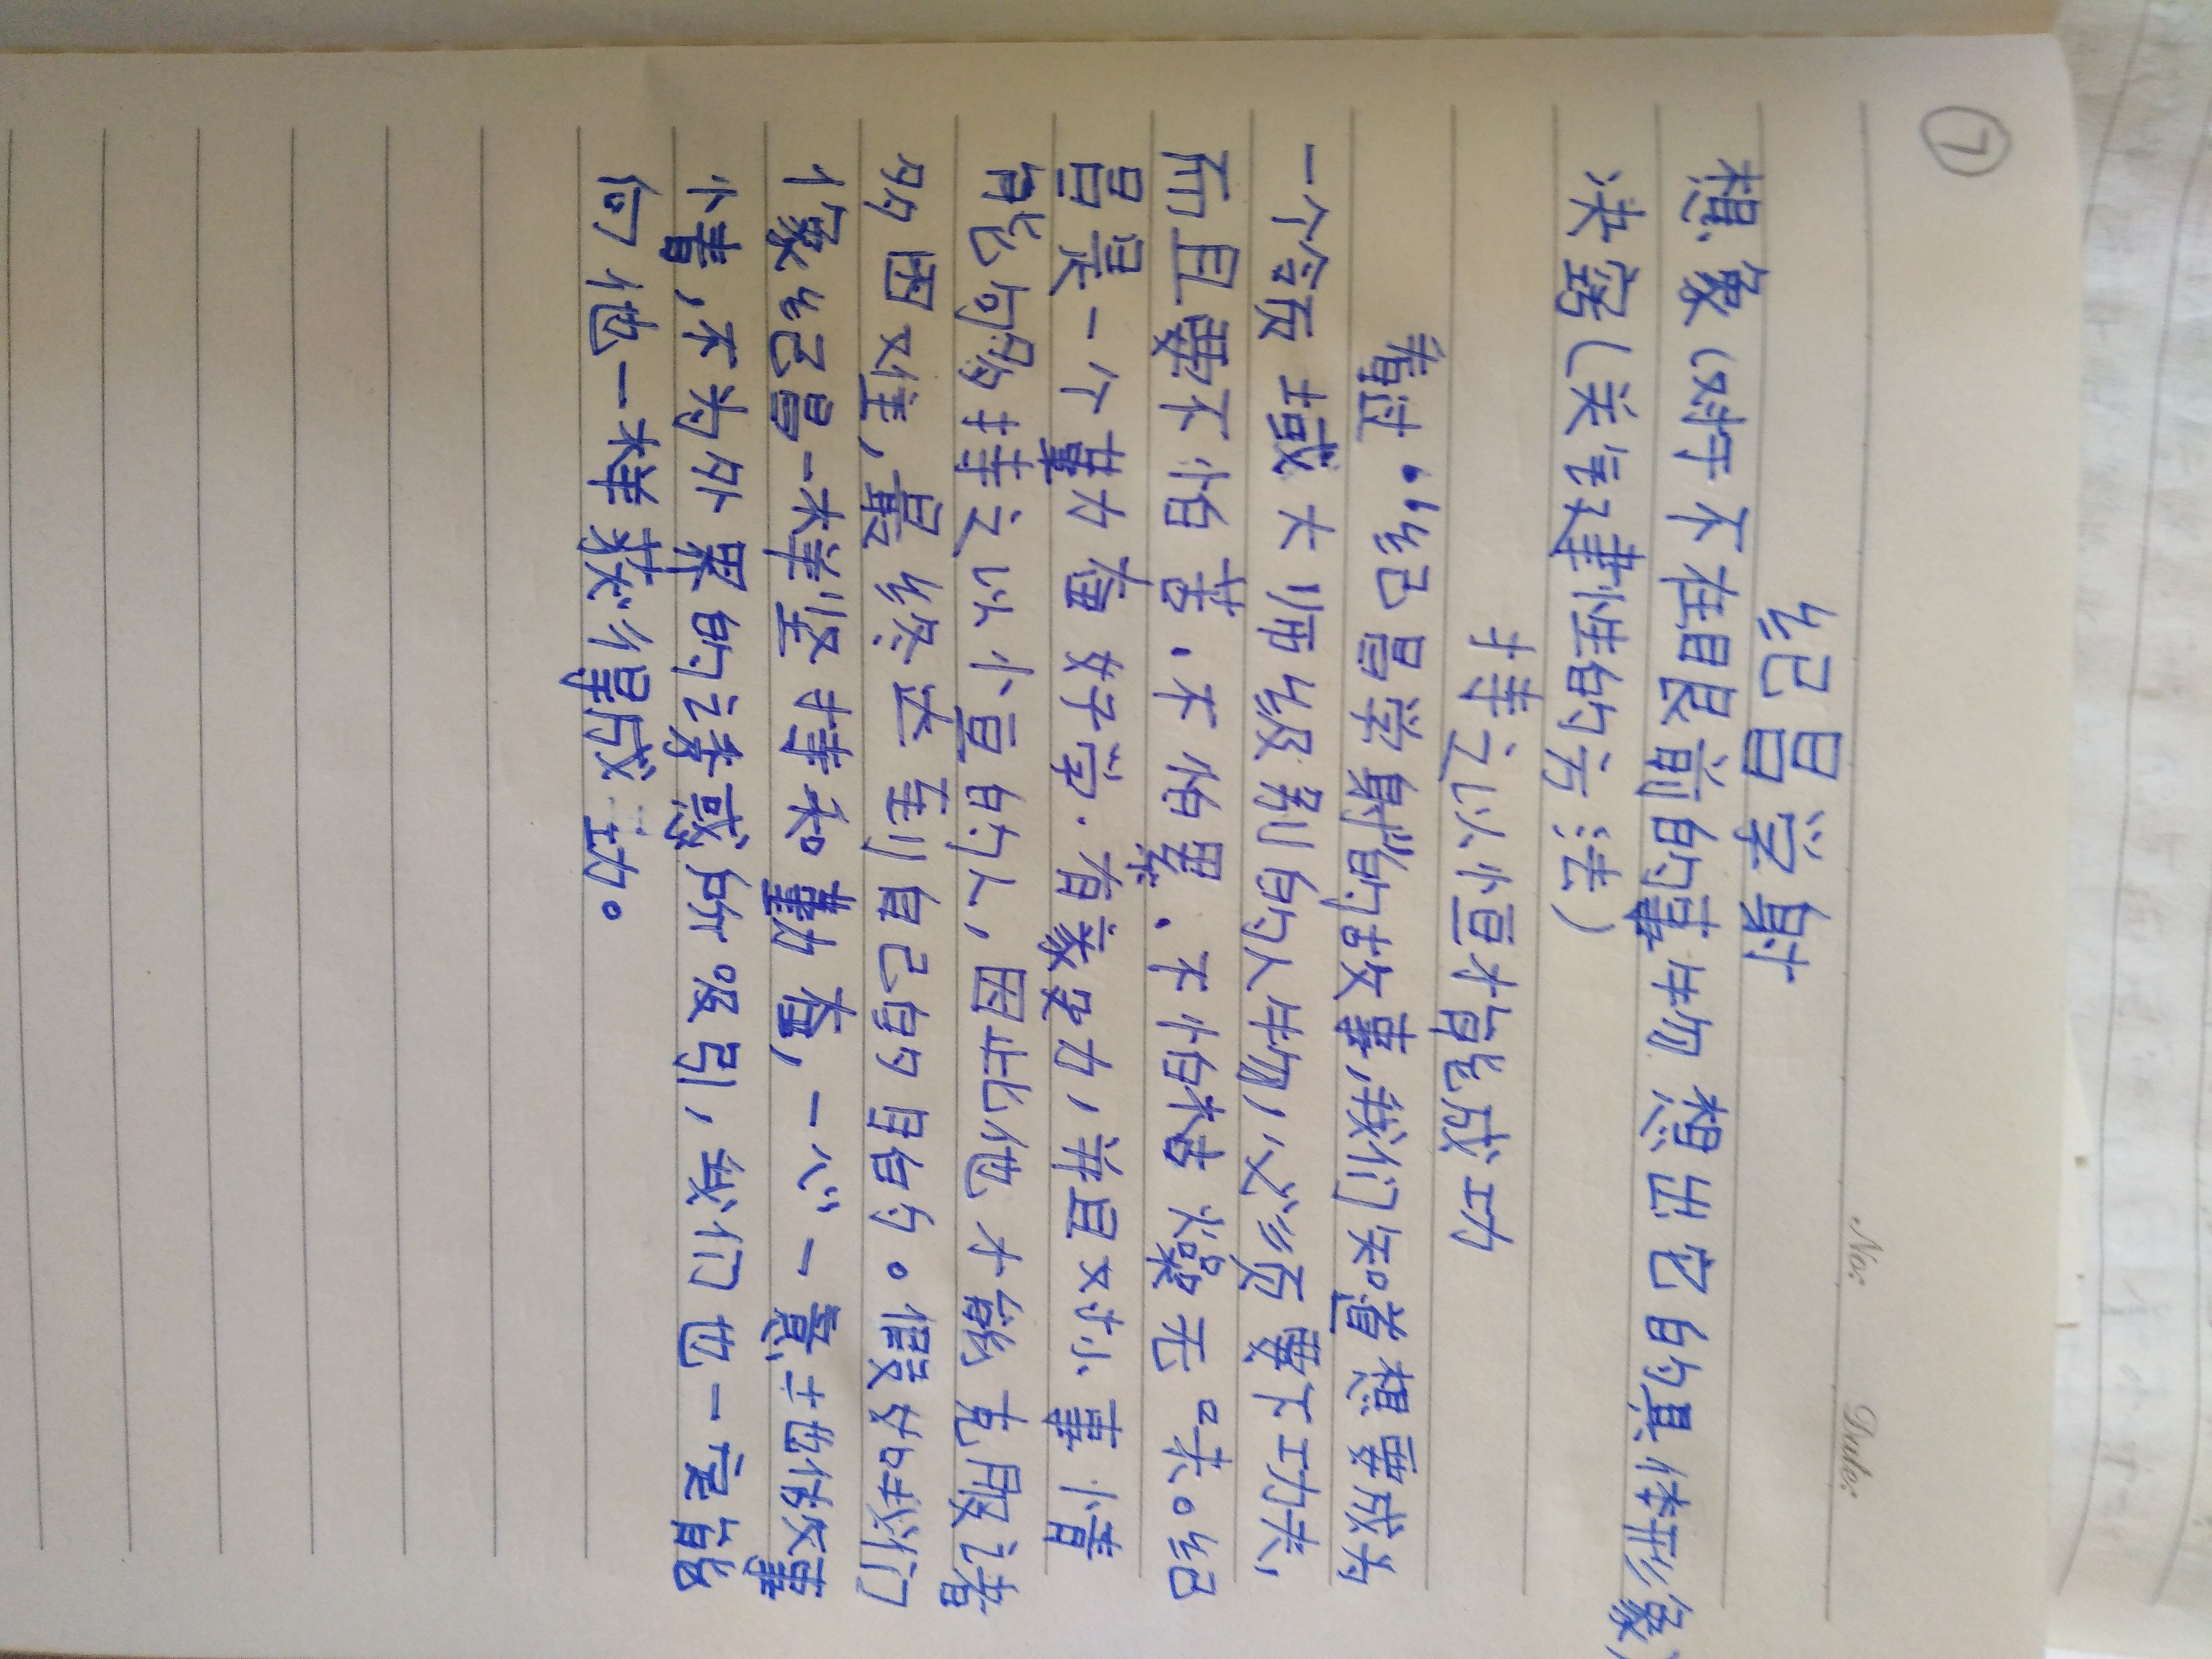 ⑦
No:
Date:
纪昌学射
想象(对于不在眼前的事物想出它的具体形象)
决窍(关键性的方法)
持之以恒才能成功
看过“纪昌学射”的故事,我们知道想要成为
一个领域大师级别的人物,必须要下功夫,
而且要不怕苦.不怕累.不怕枯燥无味。纪
昌是一个勤奋好学.有毅力,并且对小事情
能够持之以恒的人,因此他才能克服诸
多困难,最终达到自己的目的。假如我们
像纪昌一样坚持和勤奋,一心一意地做事
情,不为外界的诱惑所吸引,我们也一定能
向他一样获得成功。